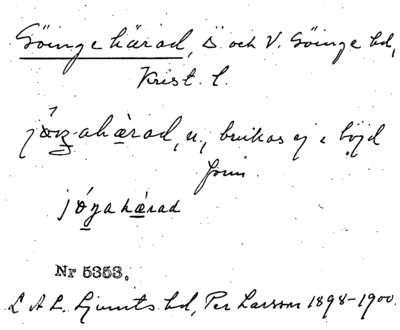 Göinge härad, Ö. och V. Göinge hd,
Krist. l.
jôŋahàrad, n, brukas ej i böjd
form.
jóŋahàrad
Nr 5353.
L A L. Ljunits hd, Per Larsson 1898-1900.